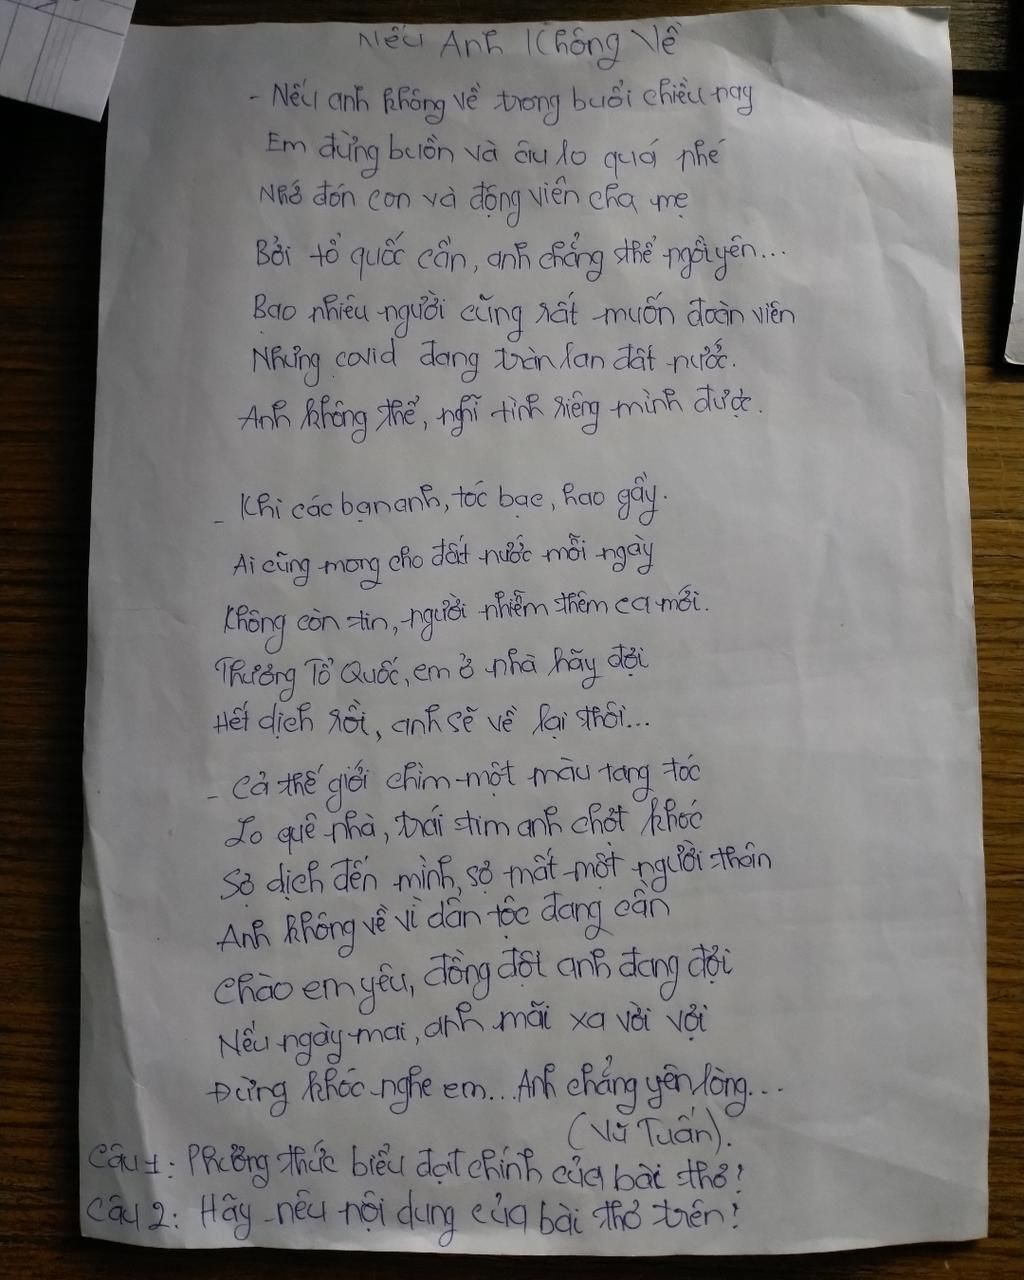 Nếu Anh Không Về
- Nếu anh không về trong buổi chiều nay
Em đừng buồn và âu lo quá nhé
Nhớ đón con và động viên cha mẹ
Bởi tổ quốc cần, anh chẳng thể ngồi yên...
Bao nhiêu người cũng rất muốn đoàn viên
Nhưng covid đang tràn lan đất nước.
Anh không thể, nghĩ tình riêng mình được.
- Khi các bạn anh, tóc bạc, hao gầy.
Ai cũng mong cho đất nước mỗi ngày
Không còn tin, người nhiễm thêm ca mới.
Thương Tổ Quốc, em ở nhà hãy đợi
Hết dịch rồi, anh sẽ về lại thôi...
- Cả thế giới chìm một màu tang tóc
Lo quê nhà, trái tim anh chợt khóc
Sợ dịch đến mình, sợ mất một người thân
Anh không về vì dân tộc đang cần
Chào em yêu, đồng đội anh đang đợi
Nếu ngày mai, anh mãi xa vời vợi
Đừng khóc nghe em... Anh chẳng yên lòng...
(Vũ Tuấn).
Câu 1: Phương thức biểu đạt chính của bài thơ?
Câu 2: Hãy nêu nội dung của bài thơ trên?